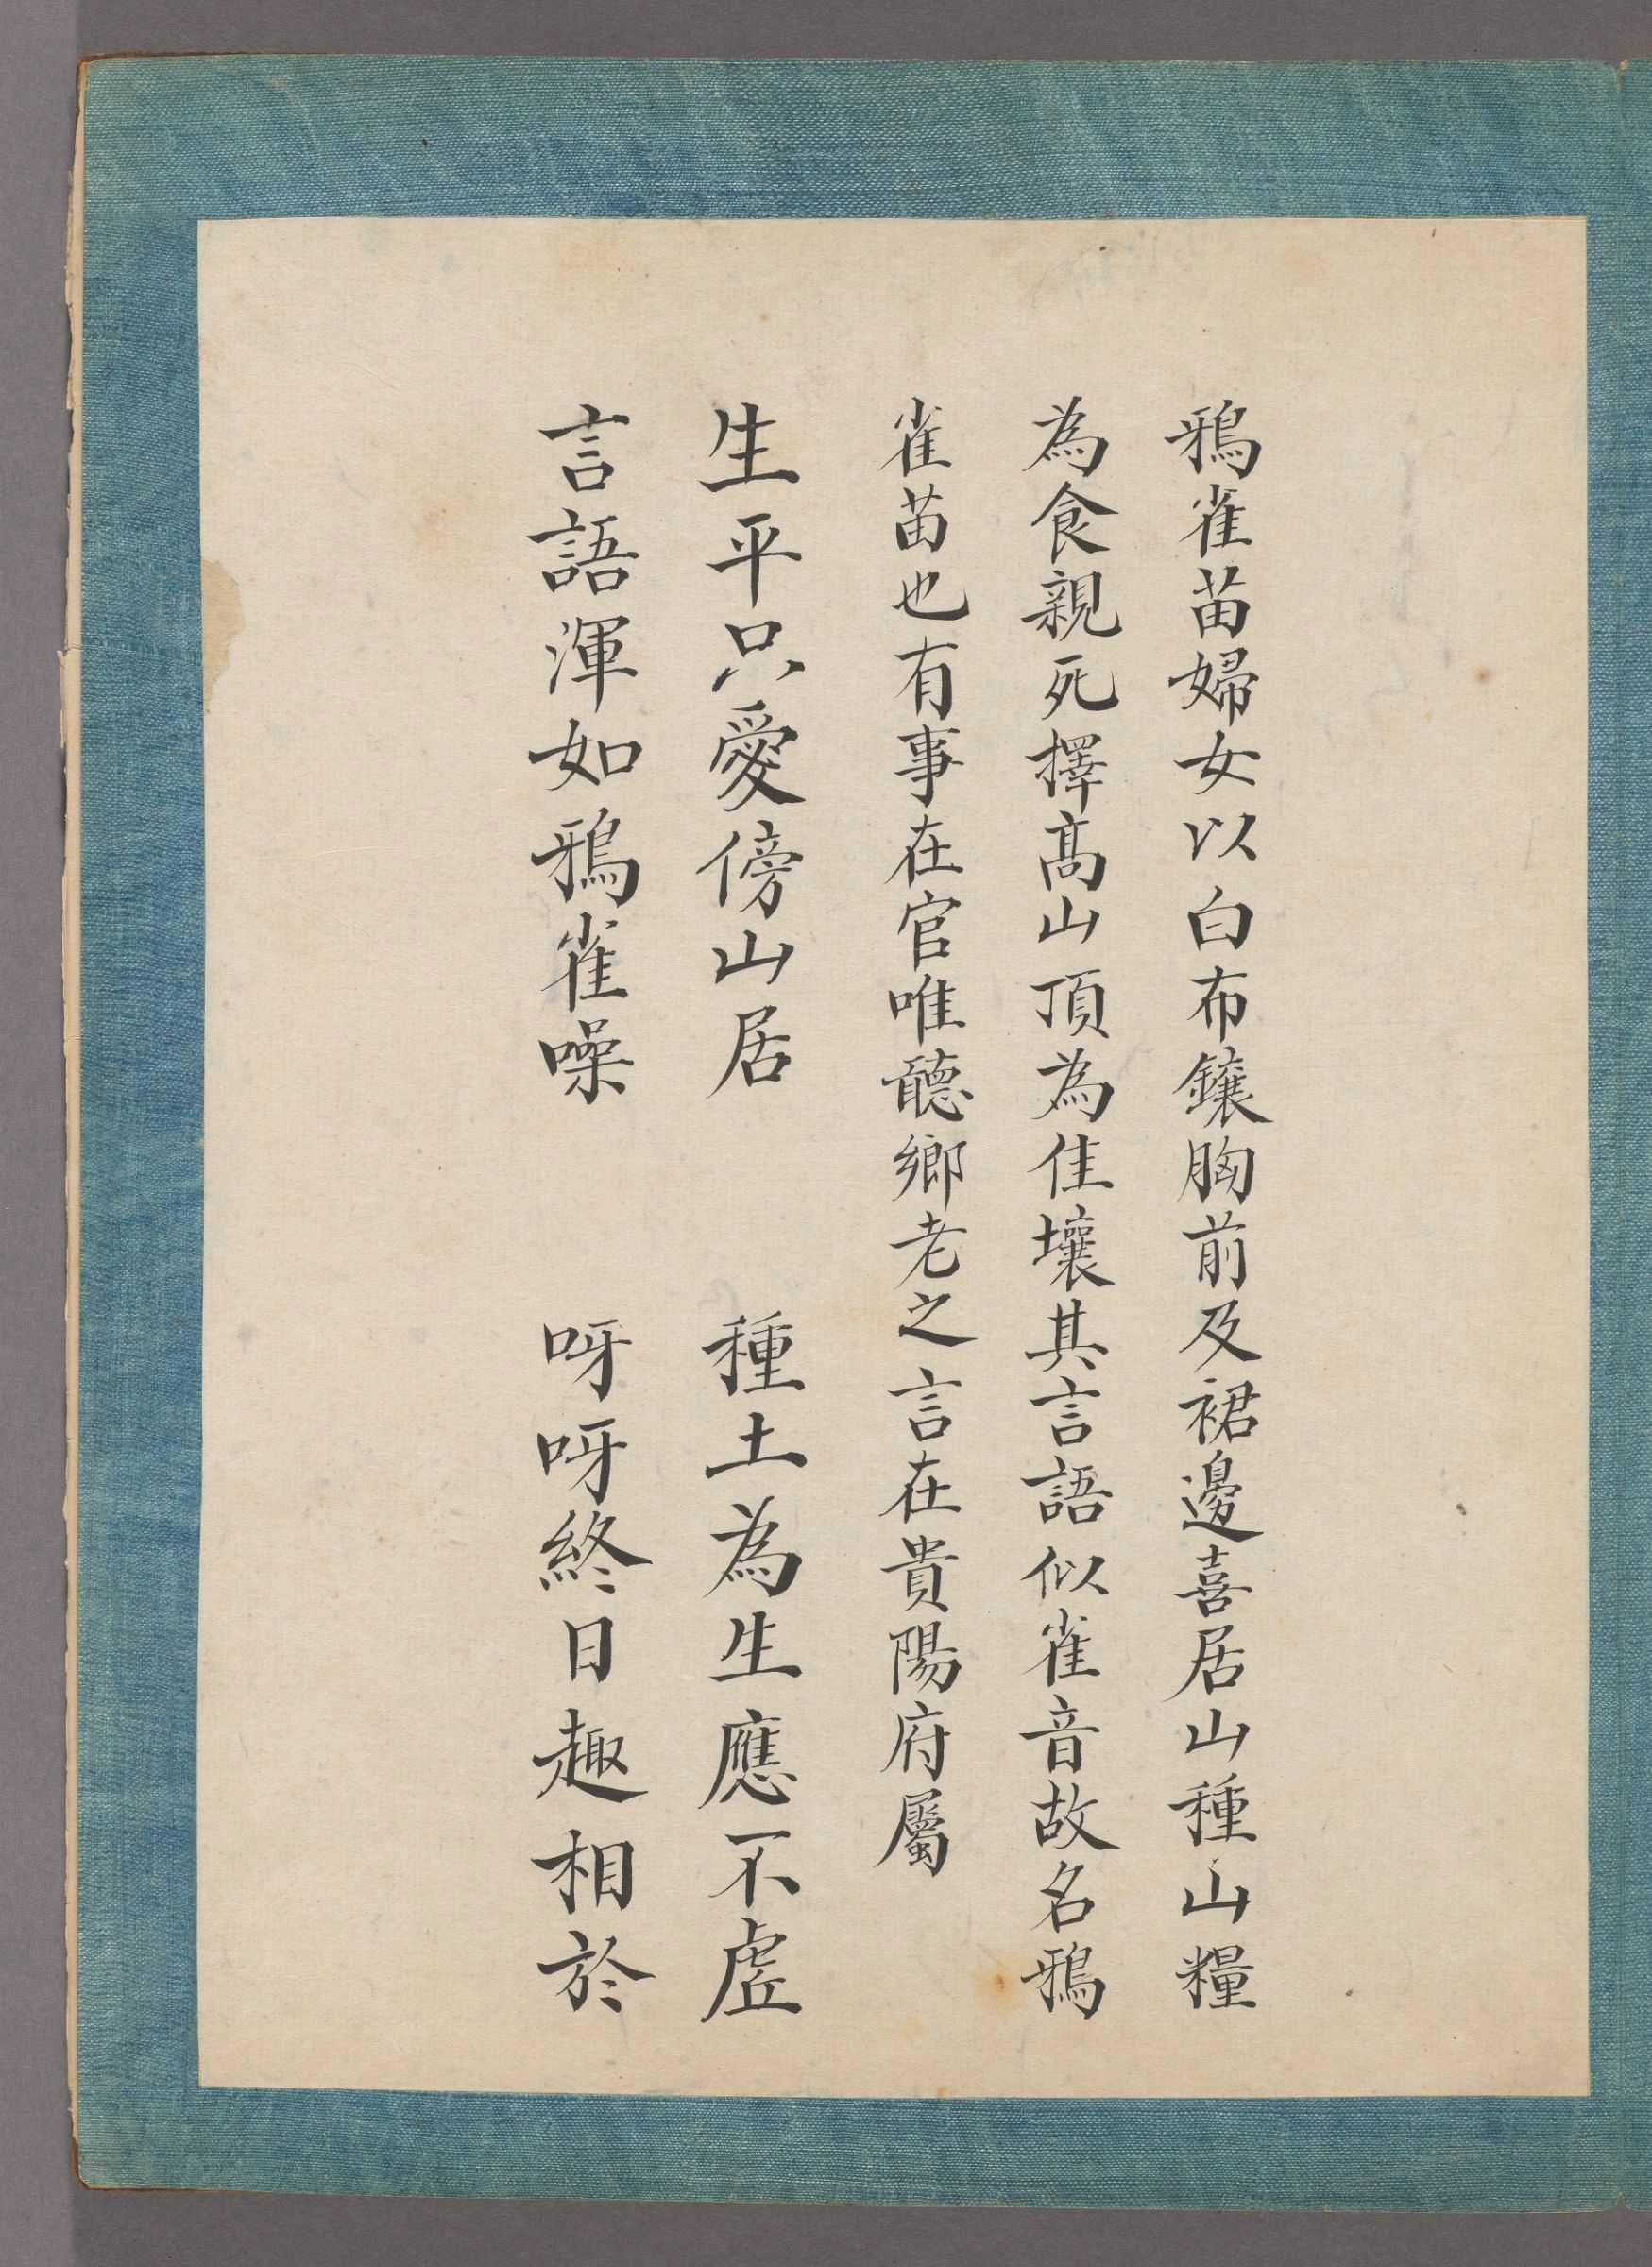 鴉雀苗婦女以白布鑲胸前及裙邊喜居山種山糧
為食親死擇髙山頂為佳壤其言語似雀音故名鴉
雀苗也有事在官唯聽鄉老之言在貴陽府屬
生平只愛傍山居 種土為生應不虛
言語渾如鴉雀噪 呀呀終日趣相於